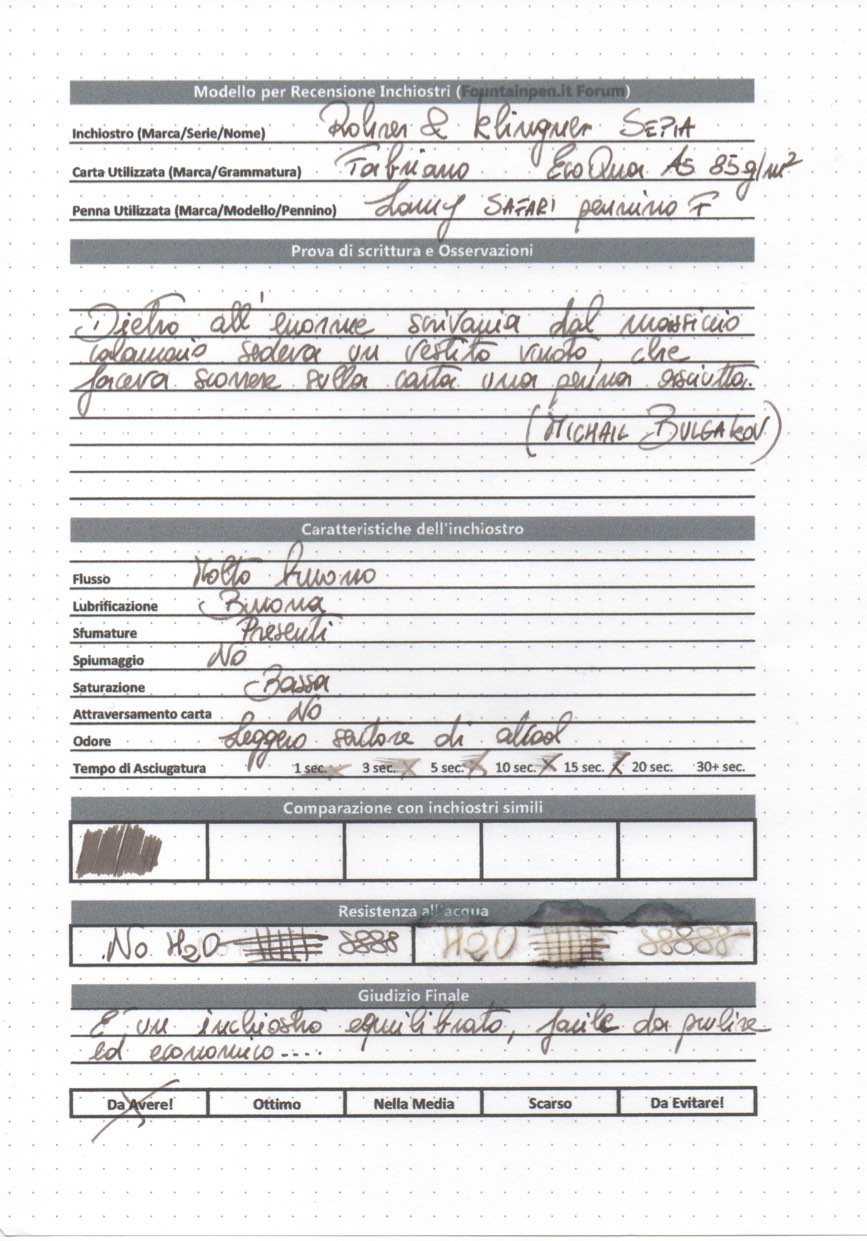 Modello per Recensione Inchiostri (Fountainpen.it Forum)
Inchiostro (Marca/Serie/Nome) Rohrer & Klingner SEPIA
Carta Utilizzata (Marca/Grammatura) Fabriano EcoQua A5 85g/m²
Penna Utilizzata (Marca/Modello/Pennino) Lamy SAFARI pennino F
Prova di scrittura e Osservazioni
Dietro all'enorme scrivania dal massiccio
calamaio sedeva un vestito vuoto, che
faceva scorrere sulla carta una penna asciutta.
(MICHAIL BULGAKOV)
Caratteristiche dell'inchiostro
Flusso Molto buono
Lubrificazione Buona
Sfumature Presenti
Spiumaggio No
Saturazione Bassa
Attraversamento carta No
Odore Leggero sentore di alcool
Tempo di Asciugatura 1 sec. 3 sec. 5 sec. 10 sec. 15 sec. 20 sec. 30+ sec.
Comparazione con inchiostri simili
Resistenza all'acqua
No H2O 8888 H2O 88888
Giudizio Finale
E' un inchiostro equilibrato, facile da pulire
ed economico....
Da Avere! Ottimo Nella Media Scarso Da Evitare!